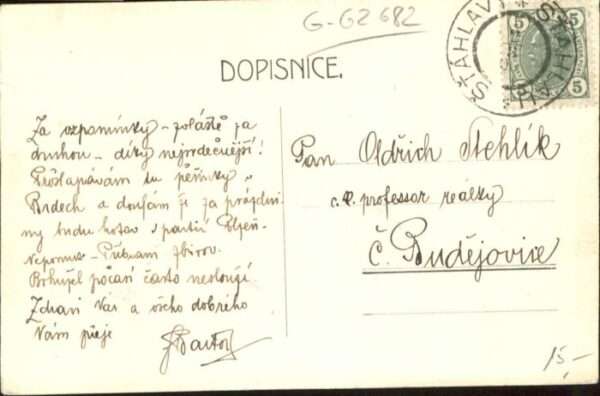 G-G2 682
DOPISNICE.
ŠŤÁHLAVY
5 5
5 5
Za vzpomínky – zvláště za
druhou – díky nejsrdečnější!
Prošlapávám tu pěšinky v
Brdech a doufám že za prázdni-
ny budu hotov s partií Plzeň-
Nepomuk – Příbram Zbirov.
Bohužel počasí často neslouží.
Zdraví Vás a všeho dobrého
Vám přeje
JBartoš
Pan Oldřich Stehlík
c. k. professor reálky
Č. Budějovice
15,-